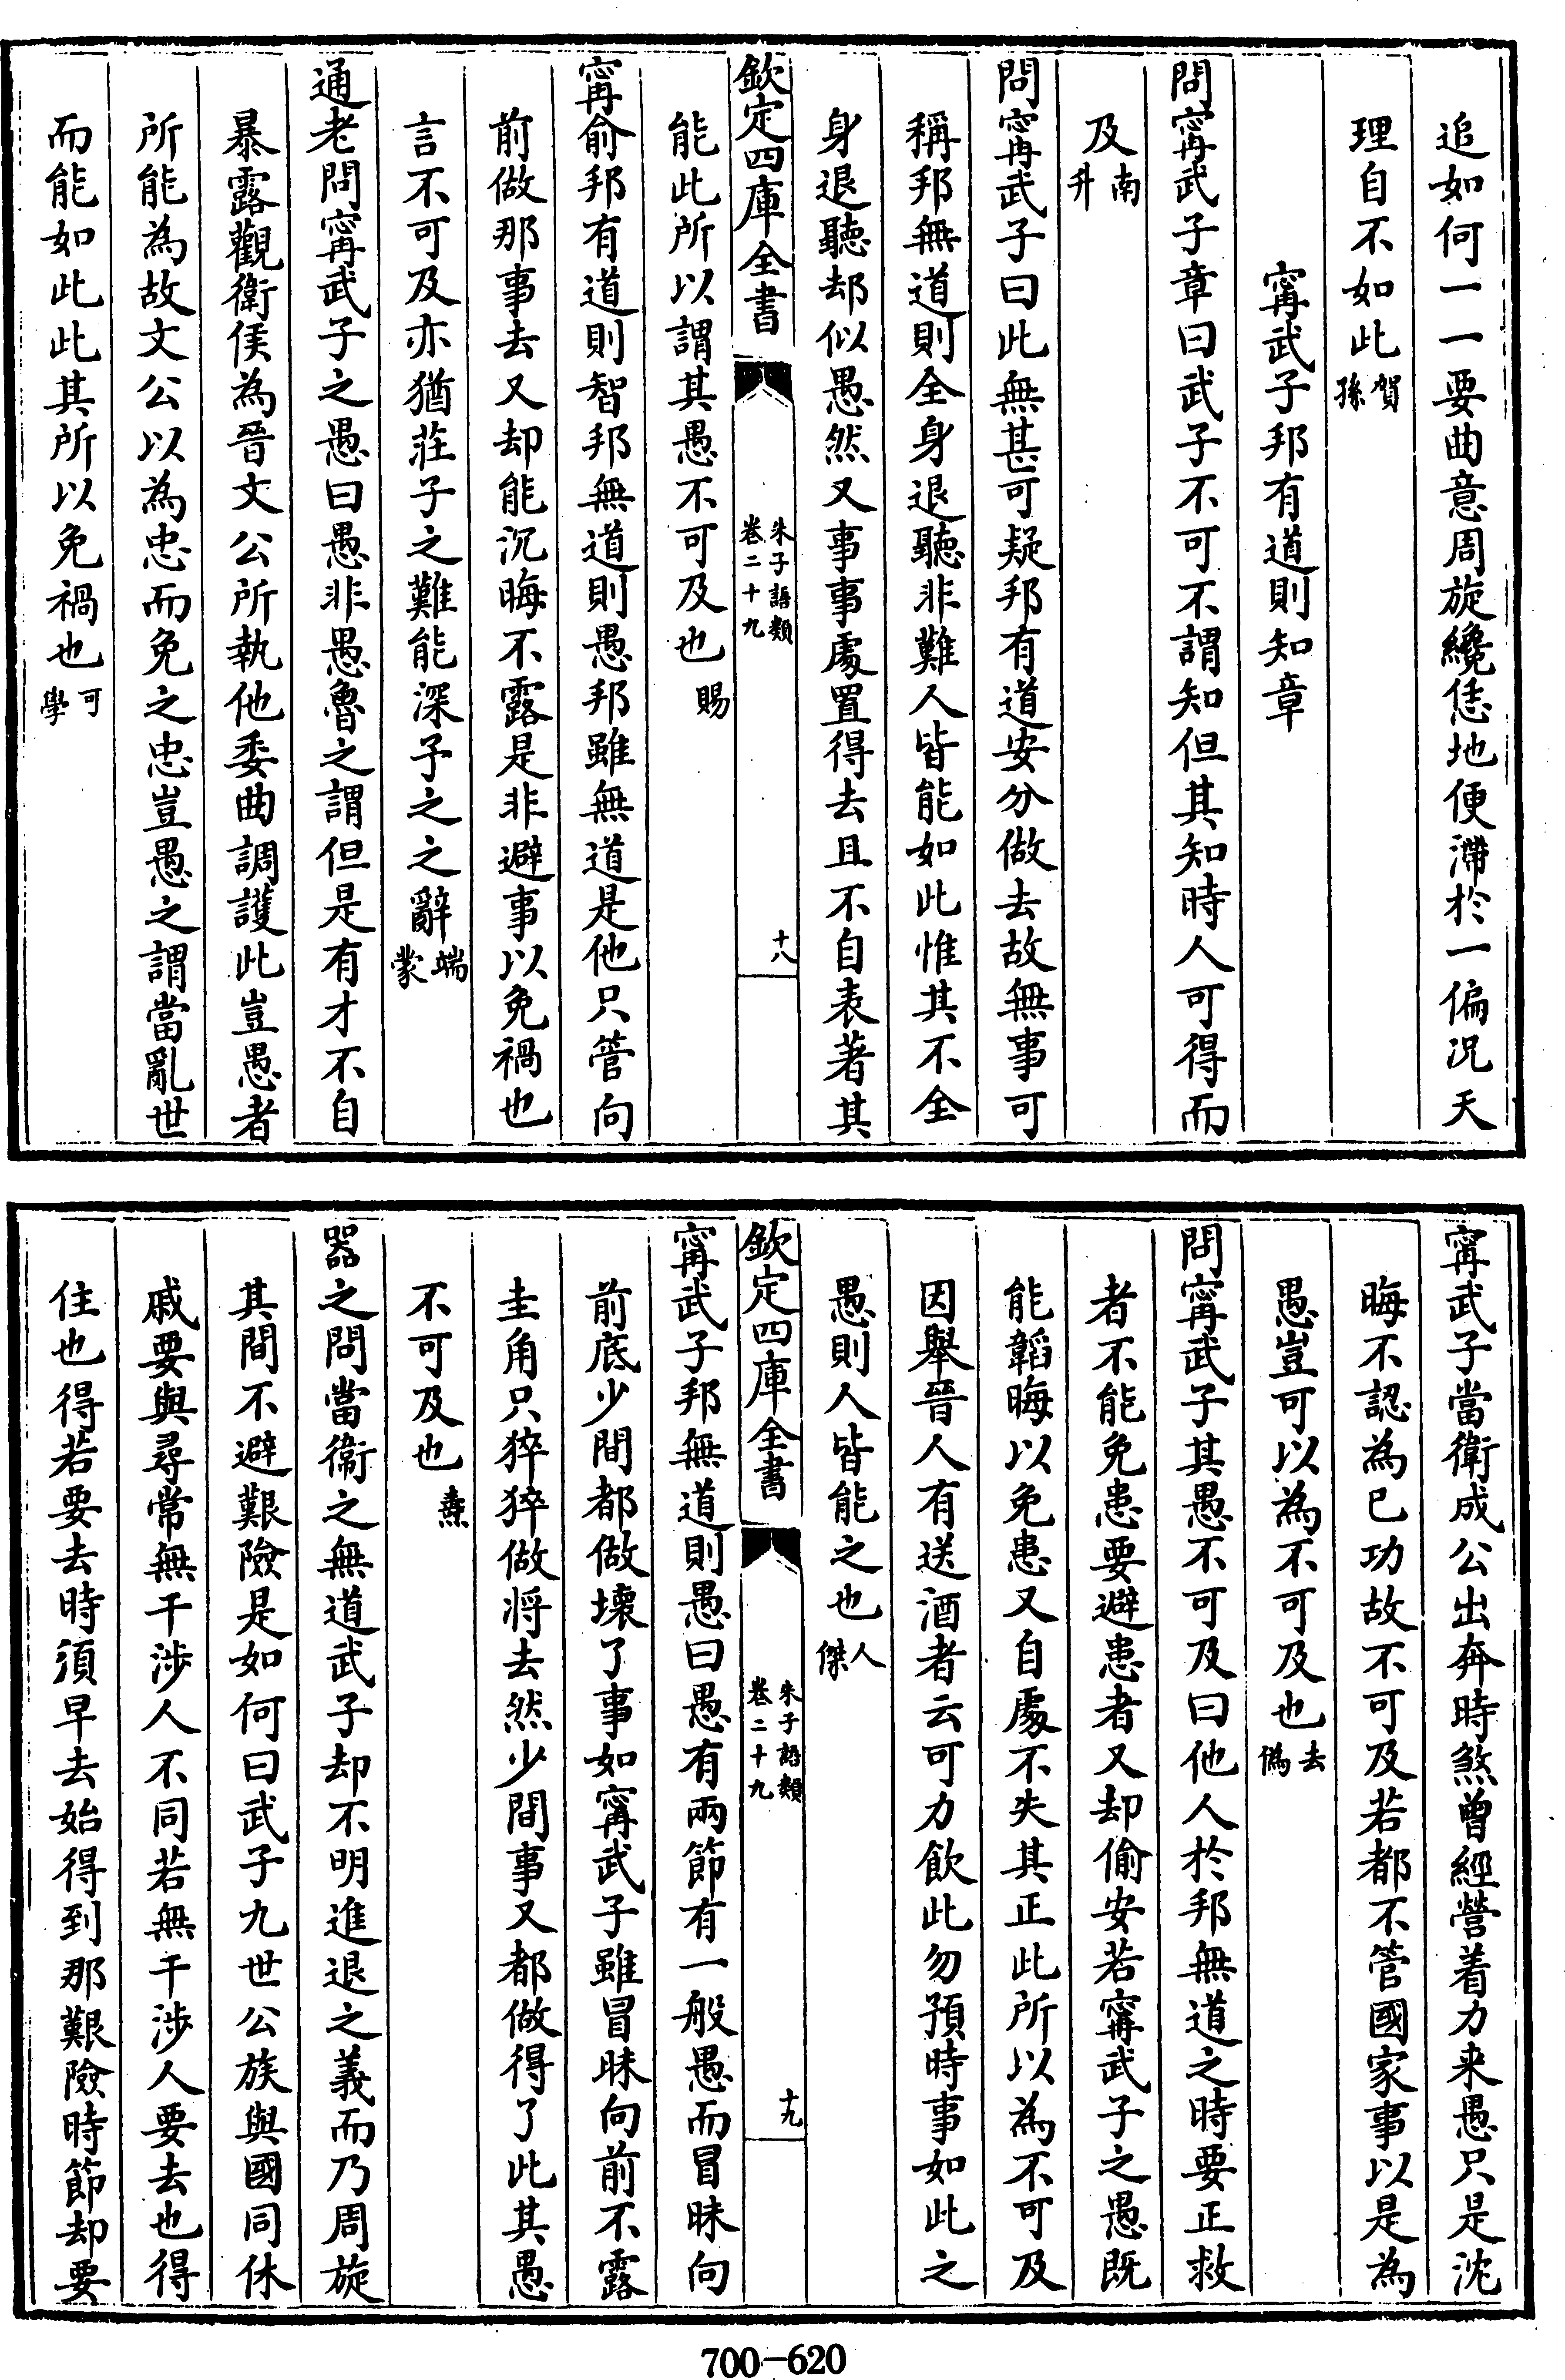 追如何一一要曲意周旋纔恁地便滯於一偏况天
理自不如此賀孫
甯武子邦有道則知章
問甯武子章曰武子不可不謂知但其知時人可得而
及南升
問甯武子曰此無甚可疑邦有道安分做去故無事可
稱邦無道則全身退聽非難人皆能如此惟其不全
身退聽却似愚然又事事處置得去且不自表著其
欽定四庫全書
朱子語類
卷二十九
十八
能此所以謂其愚不可及也賜
甯俞邦有道則智邦無道則愚邦雖無道是他只管向
前做那事去又却能沉晦不露是非避事以免禍也
言不可及亦猶莊子之難能深予之之辭端蒙
通老問甯武子之愚曰愚非愚魯之謂但是有才不自
暴露觀衛侯為晉文公所執他委曲調護此豈愚者
所能為故文公以為忠而免之忠豈愚之謂當亂世
而能如此此其所以免禍也可學
甯武子當衛成公出奔時煞曾經營着力来愚只是沈
晦不認為已功故不可及若都不管國家事以是為
愚豈可以為不可及也去偽
問甯武子其愚不可及曰他人於邦無道之時要正救
者不能免患要避患者又却偷安若甯武子之愚既
能韜晦以免患又自處不失其正此所以為不可及
因舉晉人有送酒者云可力飲此勿預時事如此之
愚則人皆能之也人傑
欽定四庫全書
朱子語類
卷二十九
十九
甯武子邦無道則愚曰愚有兩節有一般愚而冒昧向
前底少間都做壞了事如甯武子雖冒昧向前不露
圭角只猝猝做将去然少間事又都做得了此其愚
不可及也燾
器之問當衛之無道武子却不明進退之義而乃周旋
其間不避艱險是如何曰武子九世公族與國同休
戚要與尋常無干涉人不同若無干涉人要去也得
住也得若要去時須早去始得到那艱險時節却要
700-620